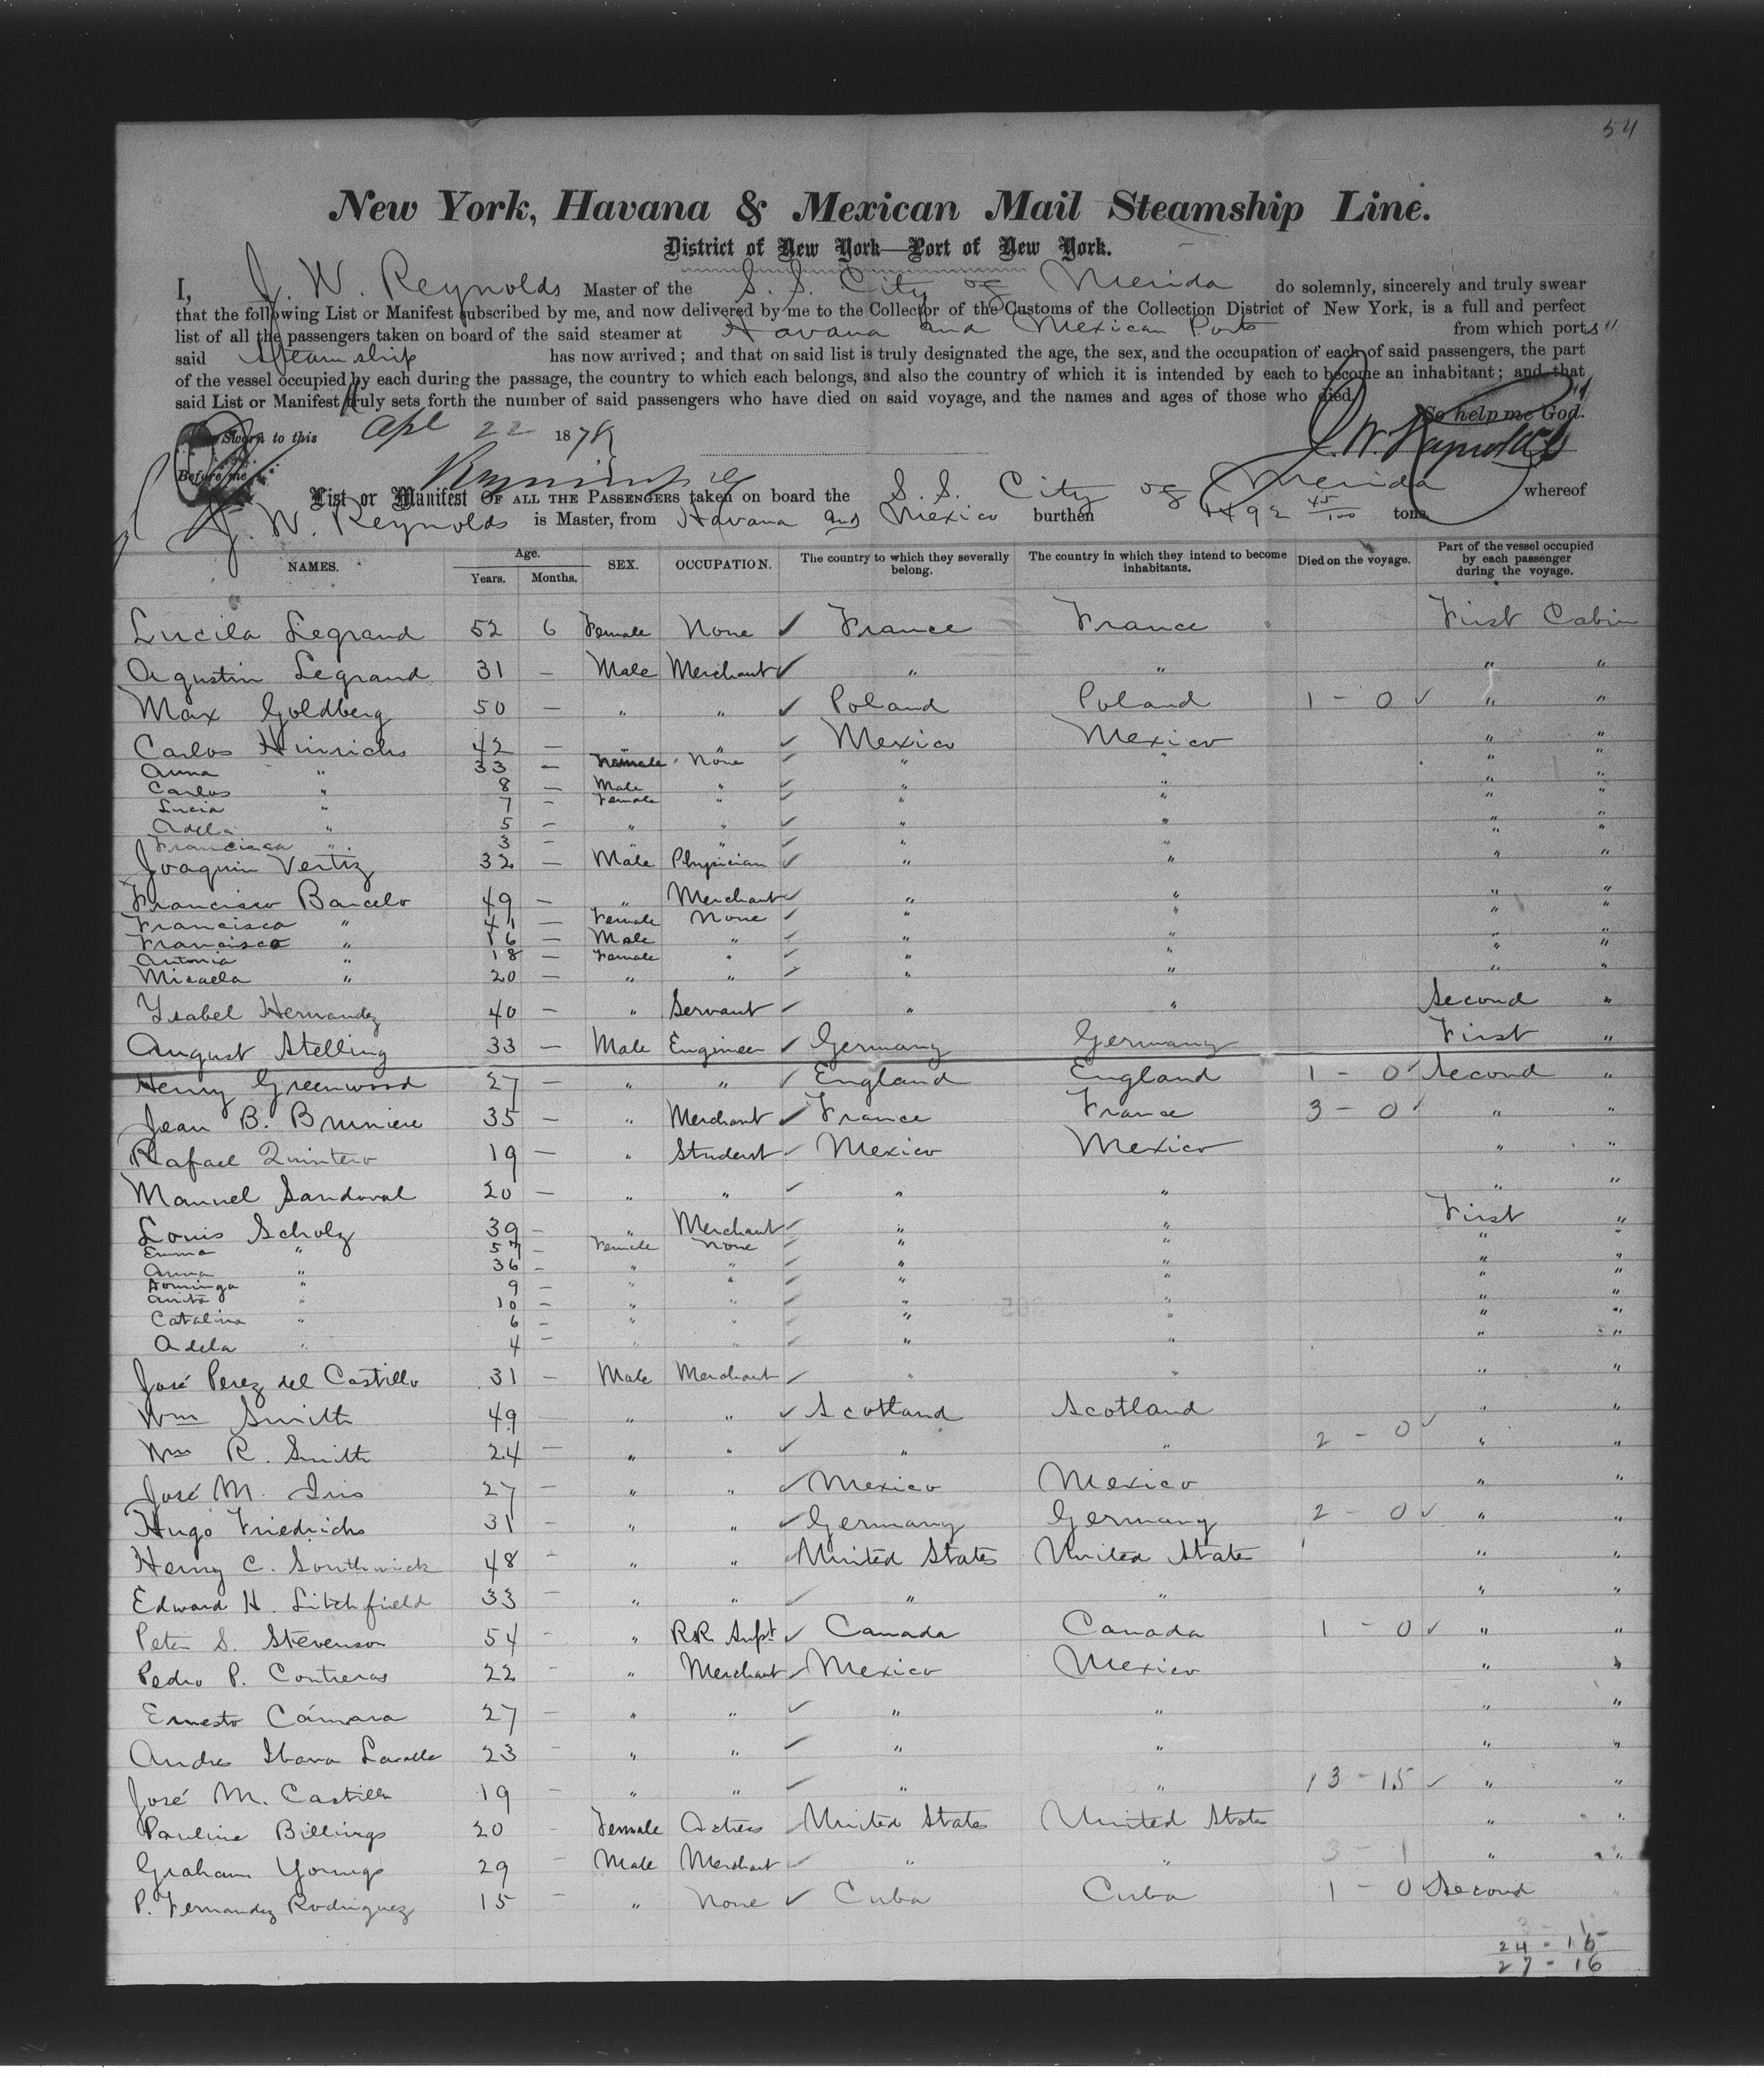 54
New York, Havana & Mexican Mail Steamship Line.
District of New York—Port of New York.
I, J. W. Reynolds Master of the S. S. City of Merida do solemnly, sincerely and truly swear
that the following List or Manifest subscribed by me, and now delivered by me to the Collector of the Customs of the Collection District of New York, is a full and perfect
list of all the passengers taken on board of the said steamer at Havana and Mexican Ports from which ports
said Steamship has now arrived; and that on said list is truly designated the age, the sex, and the occupation of each of said passengers, the part
of the vessel occupied by each during the passage, the country to which each belongs, and also the country of which it is intended by each to become an inhabitant; and that
said List or Manifest truly sets forth the number of said passengers who have died on said voyage, and the names and ages of those who died.
So help me God.
Sworn to this Apl 22 1879
J. W. Reynolds
Before me
List or Manifest OF ALL THE PASSENGERS taken on board the S. S. City of Merida whereof
J. W. Reynolds is Master, from Havana and Mexico burthen 1492 45/100 tons.
NAMES. Age. Years. Months. SEX. OCCUPATION. The country to which they severally belong. The country in which they intend to become inhabitants. Died on the voyage. Part of the vessel occupied by each passenger during the voyage.
Lucila Legrand 52 6 Female None ✓ France France First Cabin
Agustin Legrand 31 — Male Merchant ✓ " " " "
Max Goldberg 50 — " " ✓ Poland Poland 1 - 0 ✓ " "
Carlos Hinrichs 42 — " " ✓ Mexico Mexico " "
Anna " 33 — Female None ✓ " " " "
Carlos " 8 — Male " ✓ " " " "
Lucia " 7 — Female " ✓ " " " "
Adela " 5 — " " ✓ " " " "
Francisca " 3 — " " ✓ " " " "
Joaquin Vertiz 32 — Male Physician ✓ " " " "
Francisco Barcelo 49 — " Merchant ✓ " " " "
Francisca " 41 — Female None ✓ " " " "
Francisco " 16 — Male " ✓ " " " "
Antonia " 18 — Female " ✓ " " " "
Micaela " 20 — " " ✓ " " " "
Ysabel Hernandez 40 — " Servant ✓ " " Second "
August Stelling 33 — Male Engineer ✓ Germany Germany First "
Henry Greenwood 27 — " " ✓ England England 1 - 0 ✓ Second "
Jean B. Bruniere 35 — " Merchant ✓ France France 3 - 0 ✓ " "
Rafael Quintero 19 — " Student ✓ Mexico Mexico " "
Manuel Sandoval 20 — " " ✓ " " " "
Louis Scholz 39 — " Merchant ✓ " " First "
Emma " 57 — Female None ✓ " " " "
Anna " 36 — " " ✓ " " " "
Dominga " 9 — " " ✓ " " " "
Anita " 10 — " " ✓ " " " "
Catalina " 6 — " " ✓ " " " "
Adela " 4 — " " ✓ " " " "
José Perez del Castillo 31 — Male Merchant ✓ " " " "
Wm Smith 49 — " " ✓ Scotland Scotland " "
Wm R. Smith 24 — " " ✓ " " 2 - 0 ✓ " "
José M. 27 — " " ✓ Mexico Mexico " "
Hugo Friedrichs 31 — " " ✓ Germany Germany 2 - 0 ✓ " "
Henry C. Southwick 48 — " " ✓ United States United State " "
Edward H. Litchfield 33 — " " ✓ " " " "
Peter S. Stevenson 54 — " RR. Supt ✓ Canada Canada 1 - 0 ✓ " "
Pedro P. Contreras 22 — " Merchant ✓ Mexico Mexico " "
Ernesto Cámara 27 — " " ✓ " " " "
Andres 23 — " " ✓ " " " "
José M. Castillo 19 — " " ✓ " " 13 - 15 ✓ " "
Pauline Billings 20 — Female Actress ✓ United States United State " "
Graham Youngs 29 — Male Merchant ✓ " " 3 - 1 " "
P. Fernandez Rodriguez 15 — " None ✓ Cuba Cuba 1 - 0 ✓ Second "
3 - 1
24 - 15
27 - 16